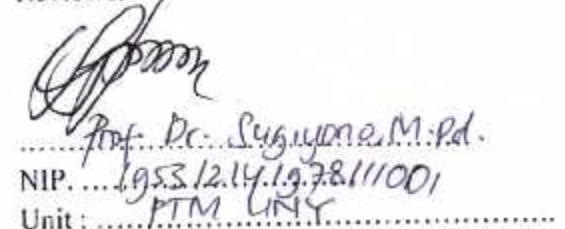 Prof. Dr. Sugiyono, M.Pd.
NIP. 19531214197811001
Unit : PTM UNY